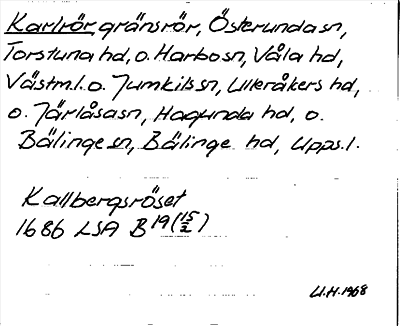 Karlrör gränsrör, Österunda sn,
Torstuna hd, o. Harbo sn, Våla hd,
Västml. o. Jumkils sn, Ulleråkers hd,
o. Järlåsa sn, Hagunda hd, o.
Bälinge sn, Bälinge hd, Upps.l.
Kallbergsröset
1686 LSA B 19 (15/2)
U.H. 1968